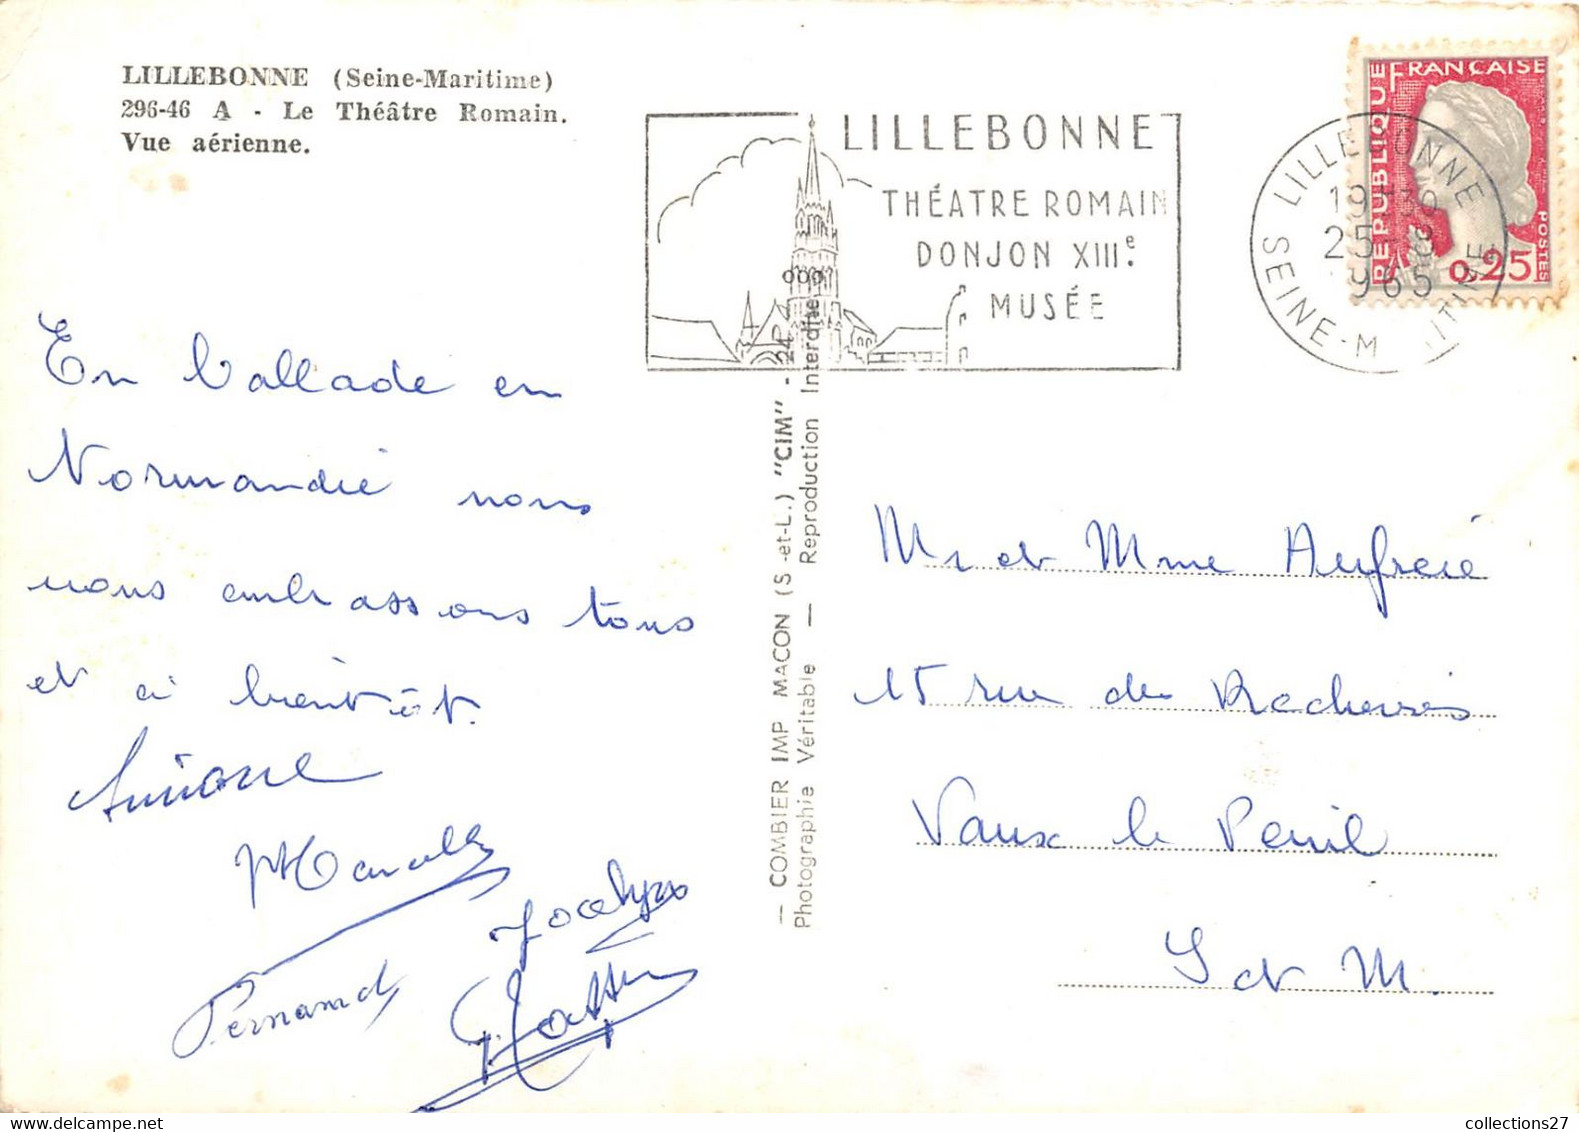 LILLEBONNE (Seine-Maritime)
296-46 A - Le Théâtre Romain.
Vue aérienne.
LILLEBONNE
THÉATRE ROMAIN
DONJON XIIIe.
MUSÉE
LILLEBONNE
19H30
25
1965
SEINE-M ITIME
REPUBLIQUE FRANÇAISE
0,25
POSTES
En ballade en
Normandie nous
vous embrassons tous
et à bientôt.
Simone
Marcelle
Jocelyne
Fernand
— COMBIER IMP MACON (S.-et-L.) "CIM" -
Photographie Véritable — Reproduction Interdite
Mr et Mme Aufreie
15 rue des
Vaux le Penil
S et M.
collections27